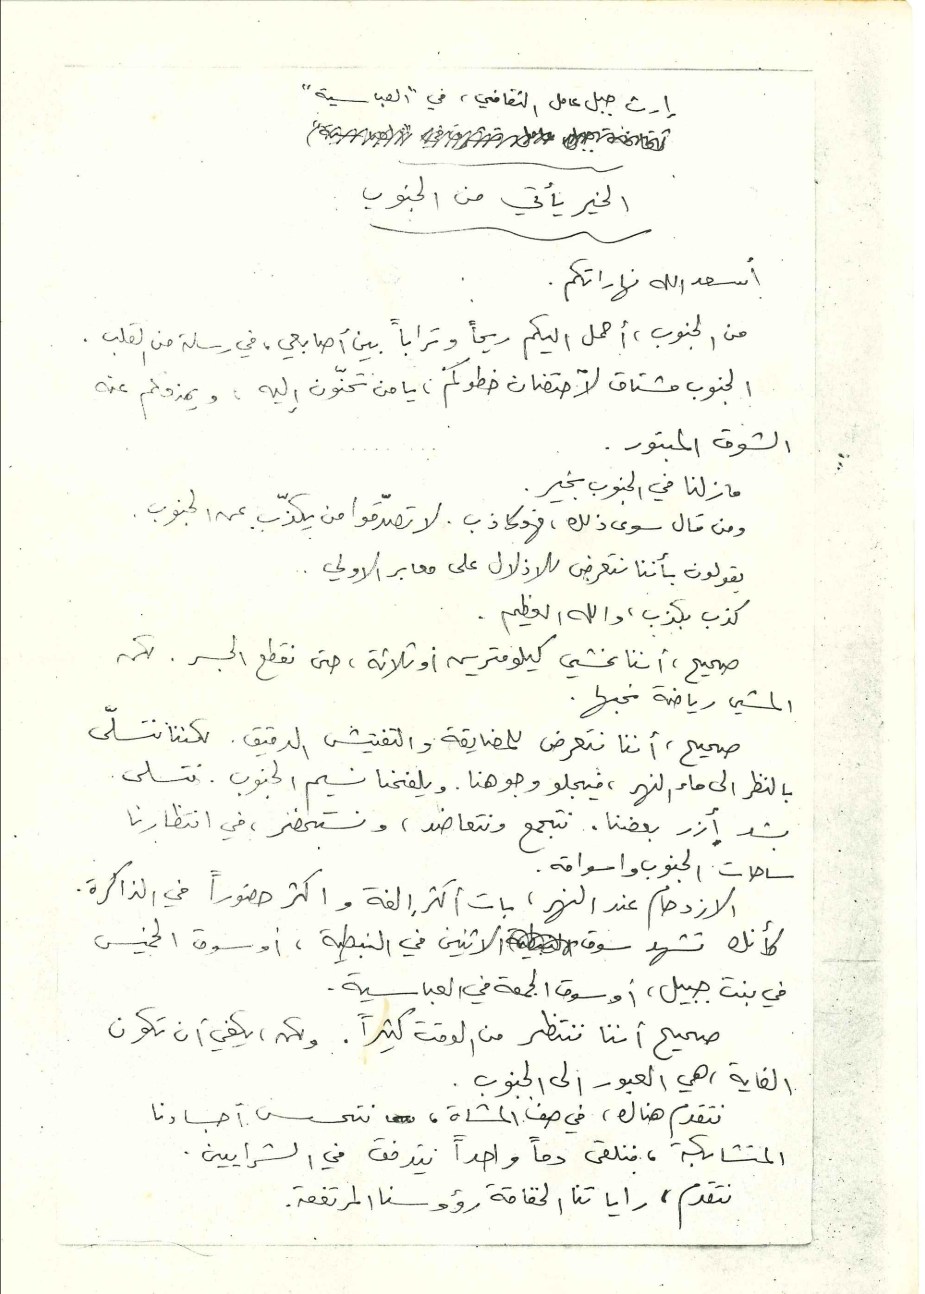 إرث جبل عامل الثقافي، في "العباسية"
الخير يأتي من الجنوب
أسعد الله نهاراتكم.
من الجنوب، أحمل اليكم ريحاً وتراباً بين أصابعي، في رسالة من القلب.
الجنوب مشتاق لأحتضان خطوكم، يا من تحنّون إليه، و عنه
الشوق المبتور.
مازلنا في الجنوب بخير.
ومن قال سوى ذلك، فهو كاذب. لا تصدّقوا من يكذّب عن الجنوب.
يقولون بأننا نتعرض للاذلال على معابر الاولي.
كذب بكذب، والله العظيم.
صحيح، أننا نمشي كيلومترين أو ثلاثة، حتى نقطع الجسر. لكن
المشي رياضة نحبها.
صحيح، أننا نتعرض للمضايقة والتفتيش الدقيق. لكننا نتسلّى
بالنظر الى ماء النهر، فيجلو وجوهنا. ويلفحنا نسيم الجنوب. نتسلى
بشد أزر بعضنا. نتجمع ونتعاضد، ونستحضر، في انتظارنا
ساحات الجنوب واسواقه.
الازدحام عند النهر، بات أكثر إلفة واكثر حضوراً في الذاكرة.
كأنك تشهد سوق الاثنين في النبطية، أو سوق الخميس
في بنت جبيل، أو سوق الجمعة في العباسية.
صحيح أننا ننتظر من الوقت كثيراً. ولكن، يكفي أن تكون
الغاية، هي العبور الى الجنوب.
نتقدم هناك، في صف المشاة، نتحسس أجسادنا
المتشابكة، فنلقى دماً واحداً يتدفق في الشرايين.
نتقدم، راياتنا الخفاقة رؤوسنا المرتفعة.